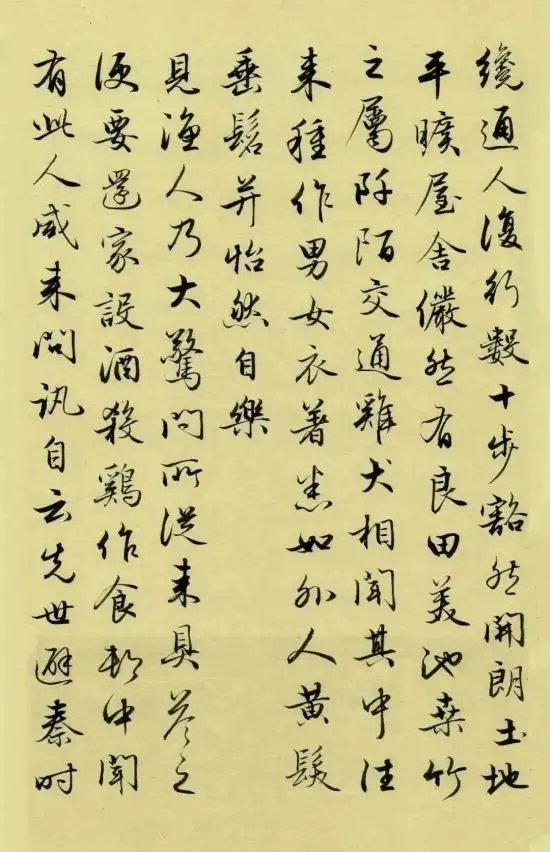 纔通人復行數十步豁然開朗土地
平曠屋舍儼然有良田美池桑竹
之屬阡陌交通雞犬相聞其中往
来種作男女衣著悉如外人黃髮
垂髫并怡然自樂
見漁人乃大驚問所從来具答之
便要還家設酒殺鷄作食村中聞
有此人咸来問訊自云先世避秦時